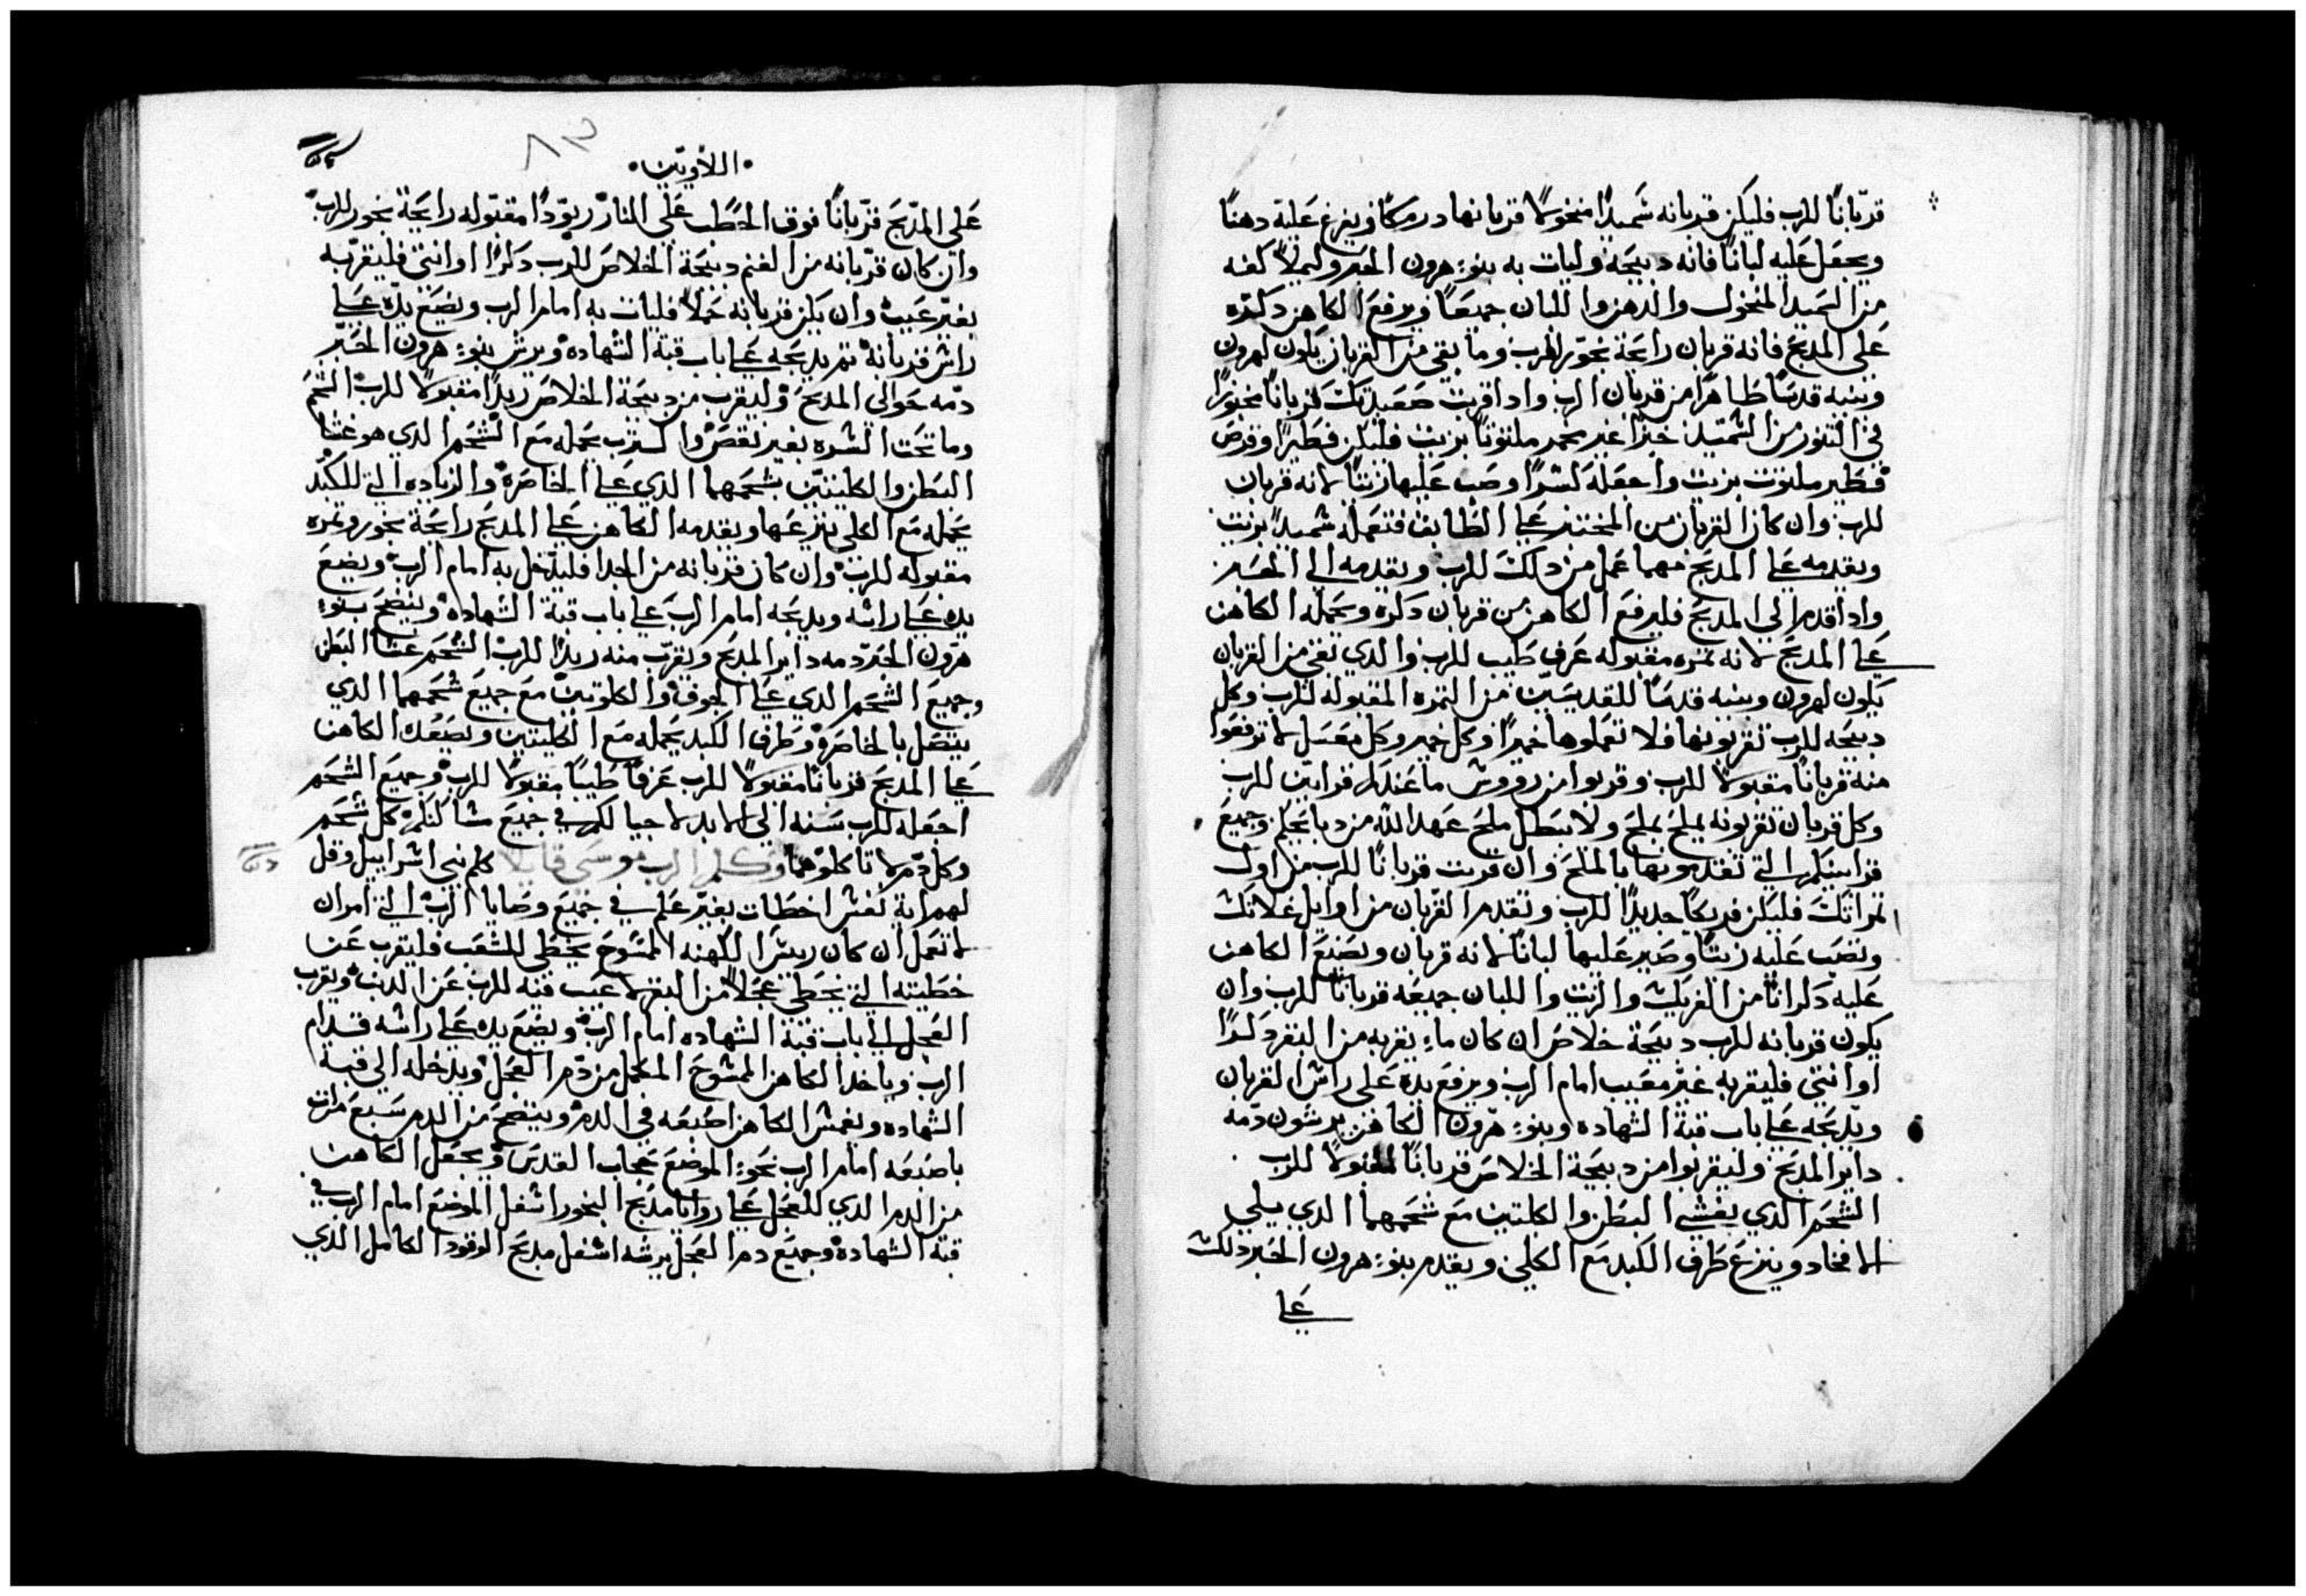 قربانًا للرب فليكن قربانه شميدًا منخولًا قربانها درمكًا ويفرغ عليه دهنًا
ويجعل عليه لبانًا فانه دبيحه وليات به بنوء هرون الحبر وليملأ كفه
من السميد المنخول والدهن واللبان جميعًا ويرفع الكاهن دكره
على المدبح فانه قربان رايحة بخور للرب وما بقي من القربان يكون لهرون
وبنيه قدسًا طاهرًا من قربان الرب وادا قربت صعيدتك قربانًا مخبوزًا
في التنور من الشميد خبزًا غير مخمر ملتوتًا بزيت فليكن فطيرًا وقرص
فطير ملتوت بزيت واجعله كسرًا وصب عليها زيتًا لانه قربان
للرب وان كان القربان من المختبز علي الطابق فتعمله شميدًا بزيت
ويقدمه علي المدبح مهما عمل من دلك للرب ويقدمه الي الحبر
وادا قدم الي المدبح فليرفع الكاهن من قربان دكره ويجمله الكاهن
علي المدبح لانه تمره مقبوله عرف طيب للرب والدي تبقي من القربان
يكون لهرون وبنيه قدسًا للقديسين من التمره المقبوله للرب وكل
دبيحه للرب تقربونها فلا تعملوها خميرًا وكل خمير وكل معسل لا ترفعوا
منه قربانًا مقبولًا للرب وقربوا من رووس ما عندكم قرابين للرب
وكل قربان تقربونه يملح بملح ولا يبطل ملح عهد الله من دبايحكم وجميع
قرابينكم التي تقدمونها بالملح وان قربت قربانًا للرب من اول
تمراتك فليكن فريكًا جديدًا للرب وتقدم القربان من اوايل غلاتك
وتصب عليه زيتًا وصير عليها لبانًا لانه قربان ويصنع الكاهن
عليه دكرانًا من الفريك والزيت واللبان جميعه قربانًا للرب وان
يكون قربانه للرب دبيحة خلاص ان كان ماء يقربه من البقر دكرًا
او انتي فليقربه غير معيب امام الرب ويرفع يده على راش القربان
ويدبحه علي باب قبة الشهاده وبنوء هرون الكاهن يرشون دمه
داير المدبح وليقربوا من دبيحة الخلاص قربانًا مقبولًا للرب
الشحم الدي يغشي البطن والكليتين مع شحمهما الدي يلي
الافخاد وينزع طرف الكبد مع الكلي ويقدم بنوء هرون الحبر دلك
علي
اللاويين
٨٣
على المدبح قربانًا فوق الحطب على النار ريودًا مقبوله رايحة بخور للرب
وان كان قربانه من الغنم دبيحة الخلاص للرب دكرًا او انتي فليقربه
بغير عيب وان يكن قربانه حملًا فليات به امام الرب ويضع يده علي
راش قربانه تم يدبحه علي باب قبة الشهاده ويرش بنوء هرون الحبر
دمه حوالي المدبح وليقرب من دبيحة الخلاص ريدًا مقبولًا للرب الشحم
وما تحت السره بغير نقص والترب يحمله مع الشحم الدي هو غشا
البطن والكليتين بشحمهما الدي علي الخاصره والزياده التي للكبد
يحمله مع الكلي ينزعها ويقدمه الكاهن علي المدبح رايحة بخور وتمره
مقبوله للرب وان كان قربانه من الجدا فليدخل به امام الرب ويضع
يده علي راشه ويدبحه امام الرب علي باب قبة الشهاده وينضح بنوء
هرون الحبر دمه داير المدبح ويقرب منه ريدًا للرب الشحم غشا البطن
وجميع الشحم الدي علي الجوف والكلوتين مع جميع شحمهما الدي
يتصل بالخاصره وطرف الكبد يحمله مع الكليتين ويصعد الكاهن
علي المدبح قربانًا مقبولًا للرب عرفًا طيبًا مقبولًا للرب وجميع الشحم
اجعله للرب سنه الي الابد لاجيالكم في جميع مشاكنكم كل شحم
وكل دم لا تاكلوهما وكلم الرب موسى قايلا كلم بني اشراييل وقل
لهم اية نفش اخطات بغير علم في جميع وصايا الرب التي امر ان
لا تعمل ان كان رييش الكهنه الممشوح يخطي للشعب فليقرب عن
خطيته التي يخطي عجلًا من البقر لا عيب فيه للرب عن الدنب ويقرب
العجل الي باب قبة الشهاده امام الرب ويضع يده علي راشه قدام
الرب وياخد الكاهن الممشوح المكمل من دم العجل ويدخله الي قبة
الشهاده ويغمش الكاهن اصبعه في الدم وينضح من الدم سبع مرات
باصبعه امام الرب نحو الموضع حجاب القدس ويجعل الكاهن
من الدم الدي للعجل علي زوايا مدبح البخور اشفل الموضع امام الرب في
قبة الشهاده وجميع دم العجل يرشه اشفل مدبح الوقود الكامل الدي